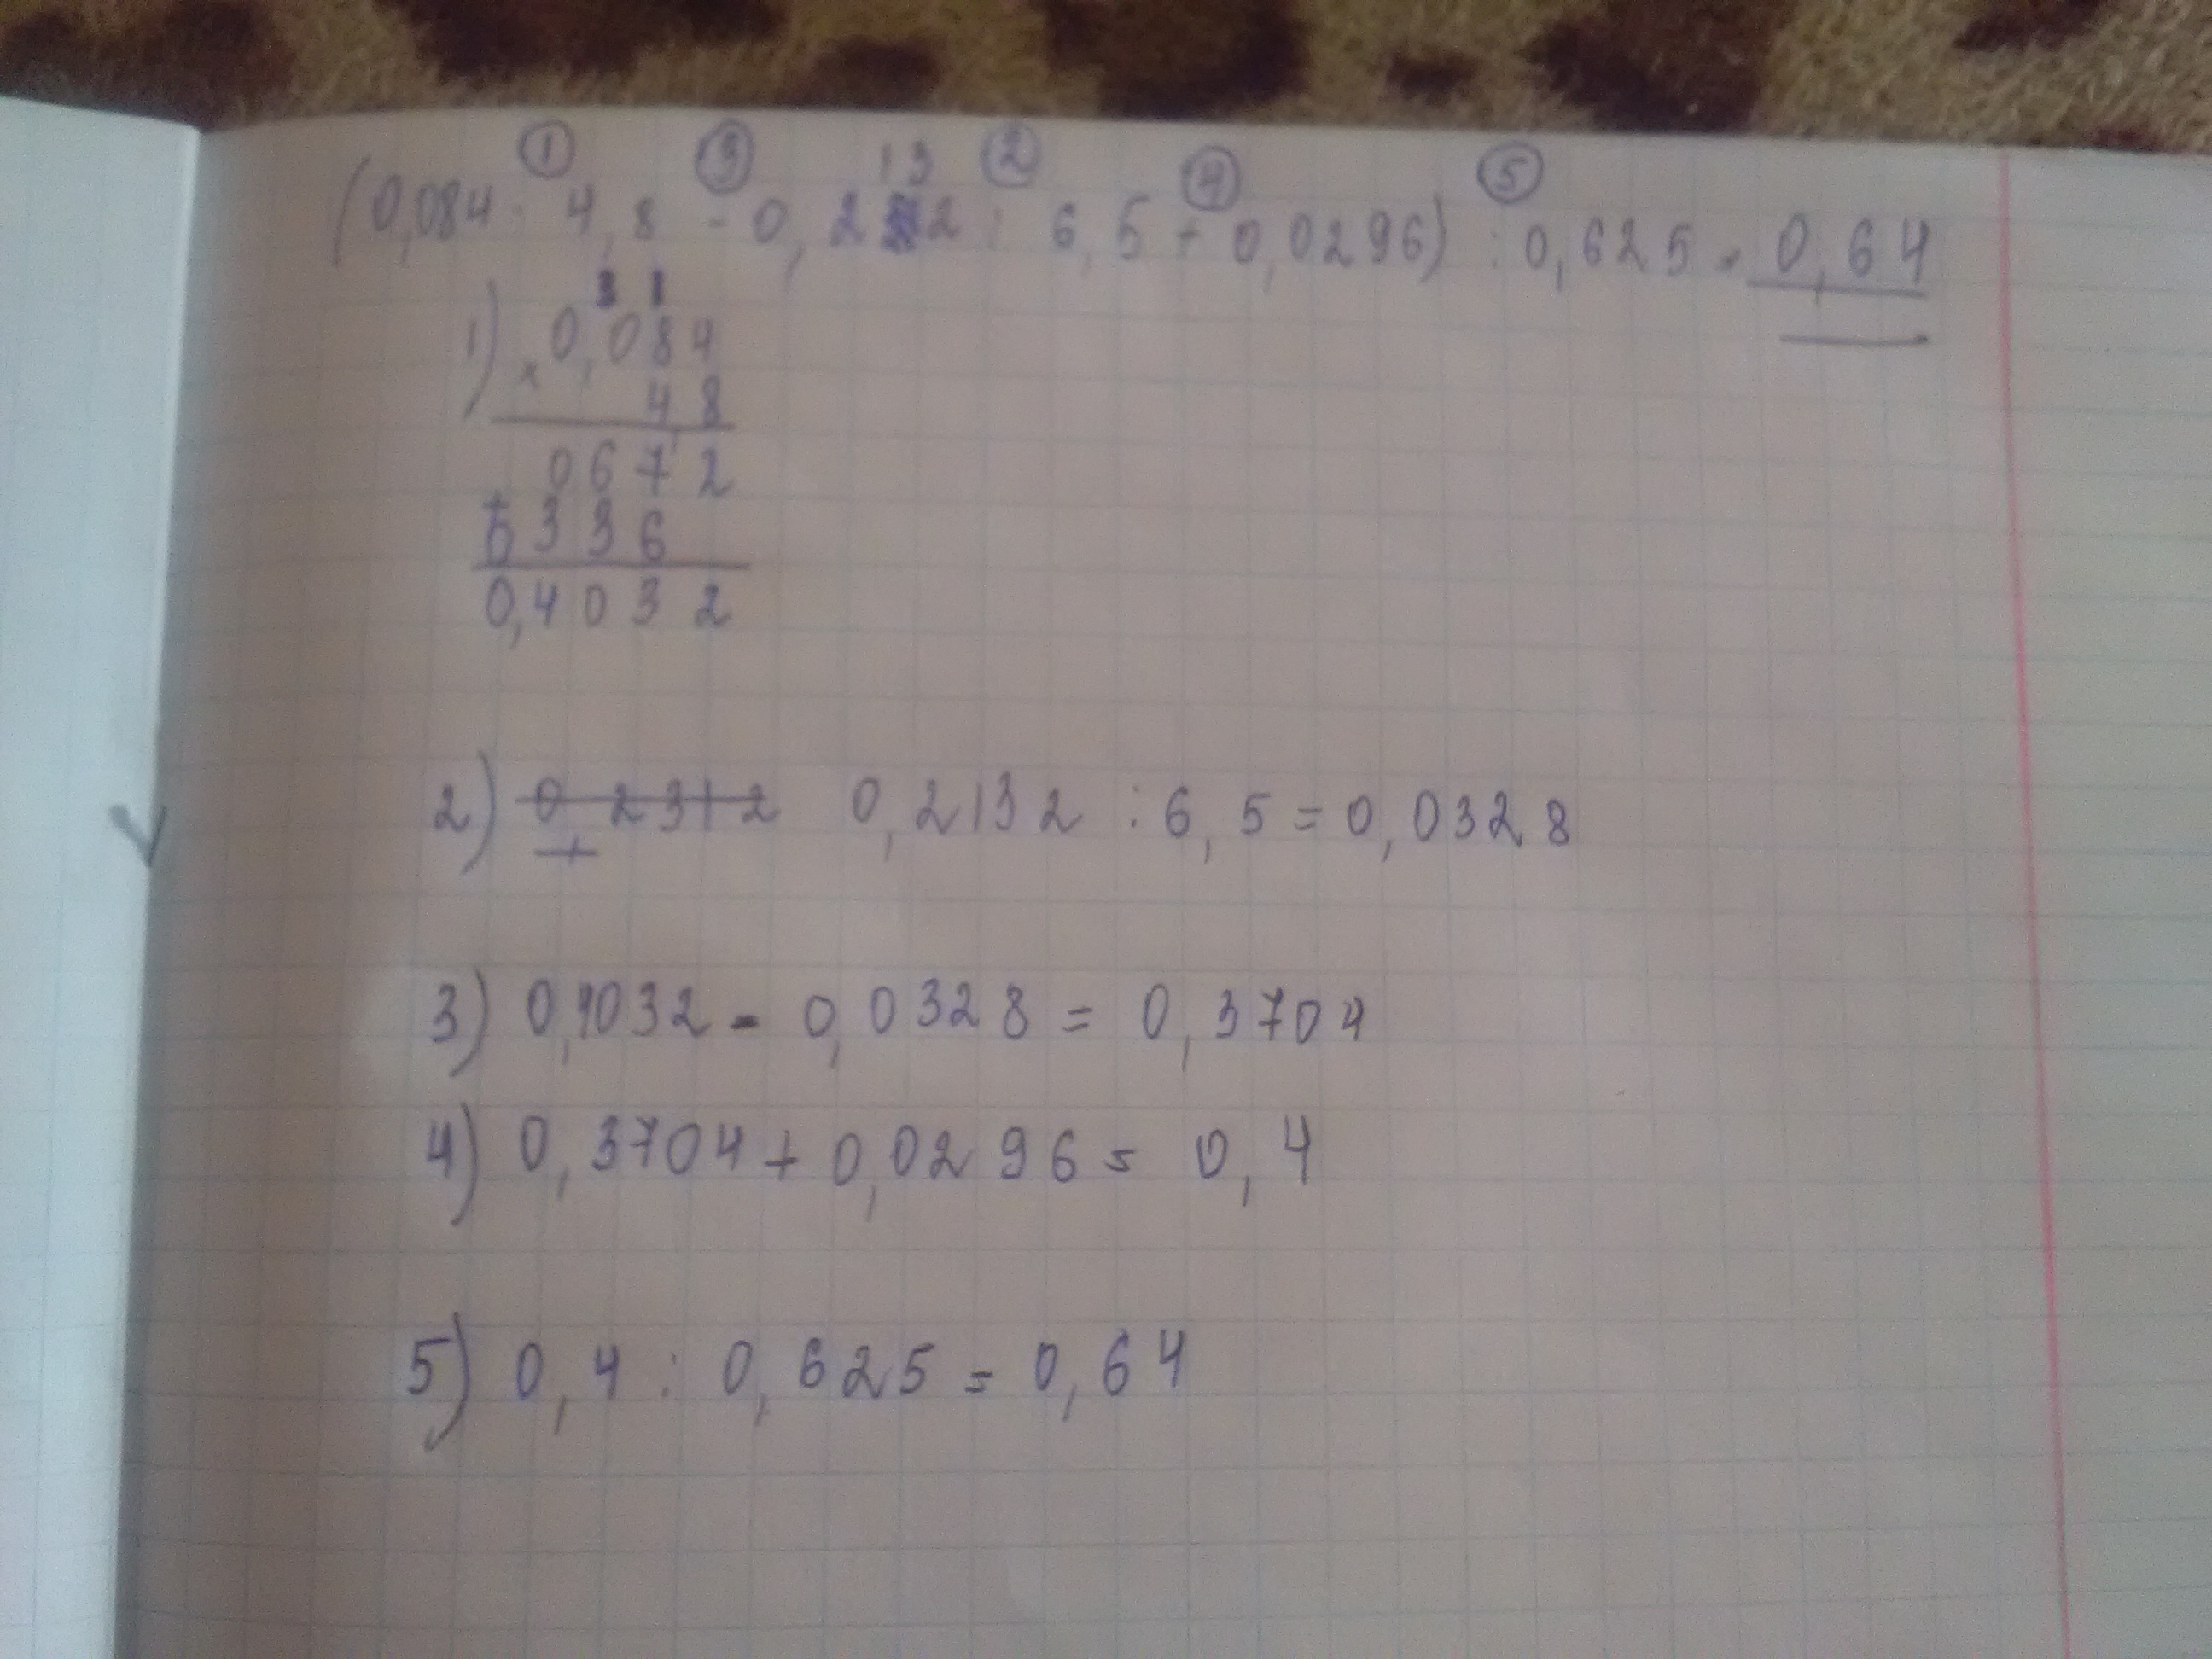 ① ③ 13 ② ④ ⑤
(0,084 · 4,8 - 0,22 : 6,5 + 0,0296) : 0,625 = 0,64
3 1
1) × 0,084
48
0672
+ 0336
0,4032
2) 0,2312 0,2132 : 6,5 = 0,0328
3) 0,4032 - 0,0328 = 0,3704
4) 0,3704 + 0,0296 = 0,4
5) 0,4 : 0,625 = 0,64